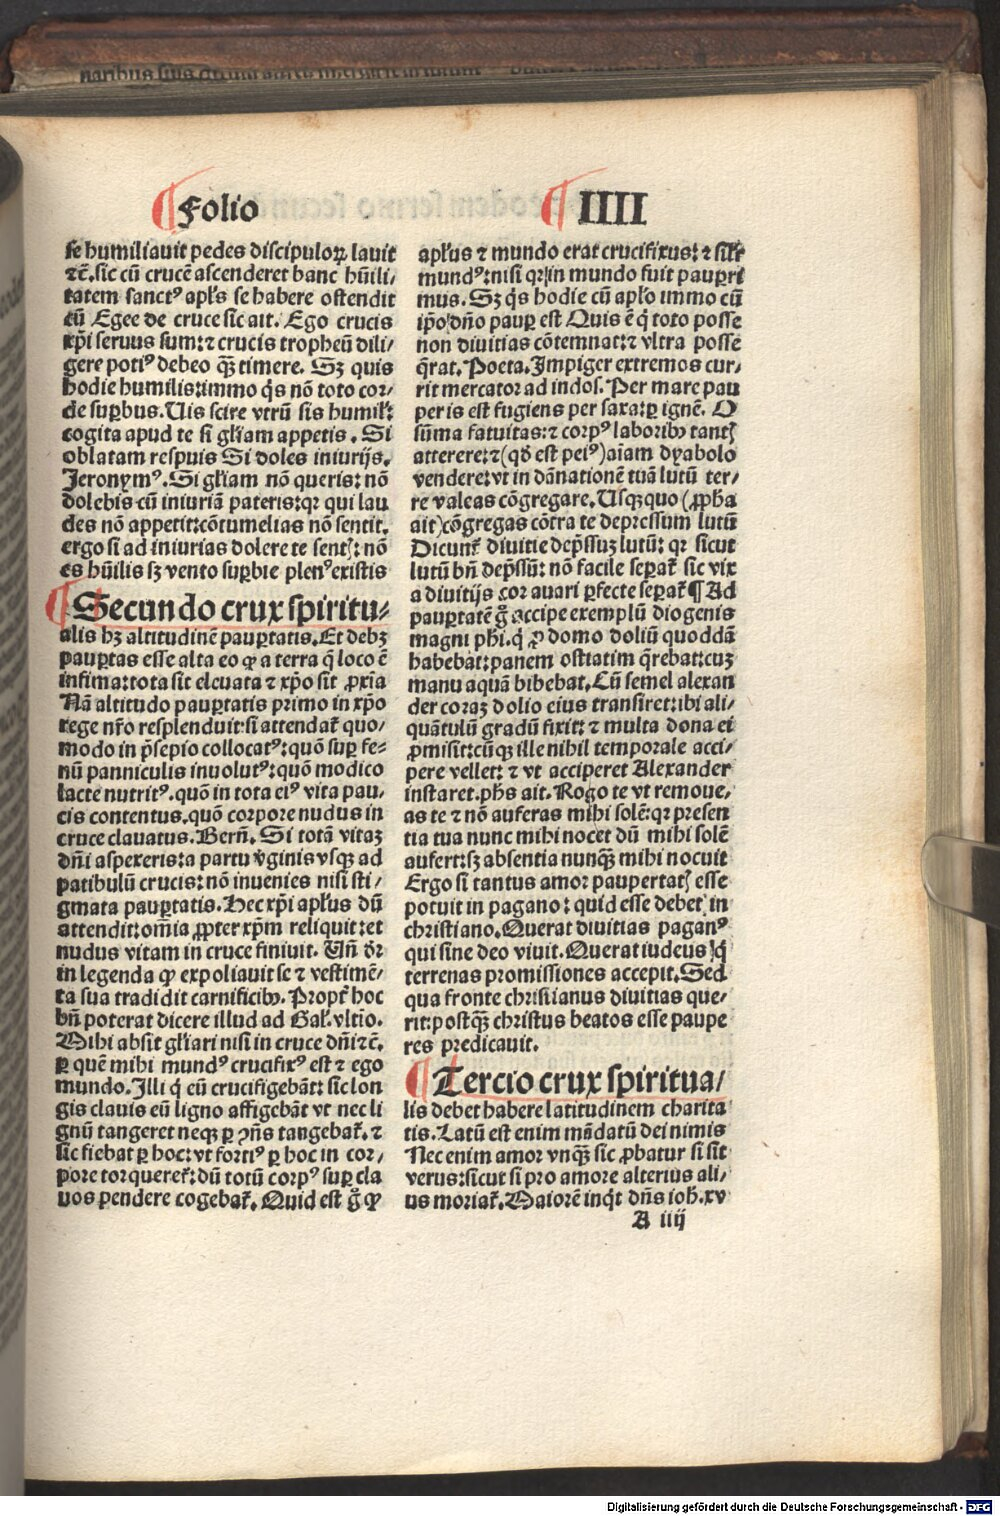 ¶ Folio ¶ IIII
se humiliauit pedes discipuloꝝ lauit
ꝛc̄. sic cū crucē ascenderet hanc hūili/
tatem sanctꝰ apłs se habere ostendit
cū Egee de cruce sic ait. Ego crucis
xp̄i seruus sum: ⁊ crucis tropheū dili/
gere potiꝰ debeo qꝫ timere. Sꝫ quis
hodie humilis: immo q̄s nō toto cor/
de suꝑbus. Uis scire vtrū sis humiľ:
cogita apud te si gľiam appetis. Si
oblatam respuis Si doles iniurijs.
Jeronymꝰ. Si gľiam nō queris: nō
dolebis cū iniuriā pateris: qꝛ qui lau
des nō appetit: cōtumelias nō sentit.
ergo si ad iniurias dolere te sentꝭ: nō
es hūilis sꝫ vento suꝑbie plenꝰ existis
¶ Secundo crux spiritu-
alis hꝫ altitudinē pauꝑtatis. Et debꝫ
pauꝑtas esse alta eo ꝙ a terra q̄ loco ē
infima: tota sit eleuata ⁊ xp̄o sit ꝓxīa
Nā altitudo pauꝑtatis primo in xp̄o
rege nr̄o resplenduit: si attendat̄ quo/
modo in p̄sepio collocatꝰ: quō suꝑ fe-
nū panniculis inuolutꝰ: quō modico
lacte nutritꝰ. quō in tota eiꝰ vita pau/
cis contentus. quō corpore nudus in
cruce clauatus. Bern̄. Si totā vitaꝫ
dn̄i aspexeris: a partu v̄ginis vsqꝫ ad
patibulū crucis: nō inuenies nisi sti/
gmata pauꝑtatis. Hec xp̄i apłus dū
attendit: om̄ia ꝓpter xp̄m reliquit: et
nudus vitam in cruce finiuit. Un̄ dr̄
in legenda ꝙ expoliauit se ⁊ vestimē/
ta sua tradidit carnificibꝰ. Propt̄ hoc
bn̄ poterat dicere illud ad Gal. vltīo.
Mihi absit gľiari nisi in cruce dn̄i ꝛc̄.
ꝑ quē mihi mundꝰ crucifixꝰ est ⁊ ego
mundo. Illi q̇ eū crucifigebāt: sic lon
gis clauis eū ligno affigebāt vt nec li
gnū tangeret neqꝫ ꝑ ꝯn̄s tangebat̄. ⁊
sic fiebat ꝑ hoc: vt fortiꝰ ꝑ hoc in cor/
pore torqueret̄: dū totū corpꝰ suꝑ cla
uos pendere cogebat̄. Quid est g̊ ꝙ
apłus ⁊ mundo erat crucifixus: ⁊ siľr
mundꝰ: nisi qꝛ in mundo fuit pauꝑri
mus. Sꝫ q̄s hodie cū apło immo cū
ip̄o dn̄o pauꝑ est Quis ē q̇ toto posse
non diuitias cōtemnat: ⁊ vltra posse
q̄rat. Poeta. Impiger extremos cur/
rit mercator ad indos. Per mare pau
periē est fugiens per saxa: ꝑ ignē. O
sūma fatuitas: ⁊ corpꝰ laboribꝰ tantꝭ
atterere: ⁊ (qđ est peiꝰ) aīam dyabolo
vendere: vt in dānationē tuā lutū ter/
re valeas cōgregare. Usqꝫquo (ꝓpha
ait) cōgregas cōtra te depressum lutū
Dicunt̄ diuitie dep̄ssuꝫ lutū: qꝛ sicut
lutū bn̄ dep̄ssū: nō facile seꝑat̄ sic vix
a diuitijs cor auari ꝑfecte seꝑat̄ ¶ Ad
pauꝑtatē g̊ accipe exemplū diogenis
magni phi. q̇ ꝓ domo doliū quoddā
habebat: panem ostiatim q̄rebat: cuꝫ
manu aquā bibebat. Cū semel alexan
der coraꝫ dolio eius transiret: ibi ali/
quātulū gradū fixit: ⁊ multa dona ei
ꝓmisit: cūqꝫ ille nihil temporale acci/
pere vellet: ⁊ vt acciperet Alexander
instaret. phs ait. Rogo te vt remoue/
as te ⁊ nō auferas mihi solē: qꝛ presen
tia tua nunc mihi nocet dū mihi solē
aufert: sꝫ absentia nunqꝫ mihi nocuit
Ergo si tantus amor paupertatꝭ esse
potuit in pagano: quid esse debet in
christiano. Querat diuitias paganꝰ
qui sine deo viuit. Querat iudeus q̇
terrenas promissiones accepit. Sed
qua fronte christianus diuitias que/
rit: postqꝫ christus beatos esse paupe
res predicauit.
¶ Tercio crux spiritua/
lis debet habere latitudinem charita
tis. Latū est enim mādatū dei nimis
Nec enim amor vnqꝫ sic ꝓbatur si sit
verus: sicut si pro amore alterius ali/
us moriat̄. Maiorē inq̇t dn̄s ioh̄. xv
A iiij
Digitalisierung gefördert durch die Deutsche Forschungsgemeinschaft - DFG